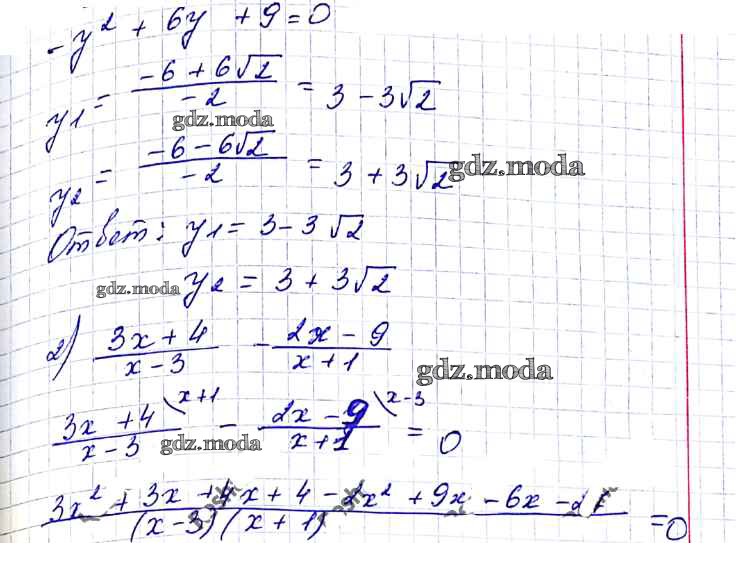 -y² + 6y + 9 = 0
y1 = (-6 + 6√2)/(-2) = 3 - 3√2
gdz.moda
y2 = (-6 - 6√2)/(-2) = 3 + 3√2
gdz.moda
Ответ: y1 = 3 - 3√2
gdz.moda y2 = 3 + 3√2
2) (3x + 4)/(x - 3) - (2x - 9)/(x + 1)
gdz.moda
(3x + 4)/(x - 3) \x+1 - (2x - 9)/(x + 1) \x-3 = 0
gdz.moda
(3x² + 3x + 4x + 4 - 2x² + 9x - 6x - 2)/((x - 3)(x + 1)) = 0